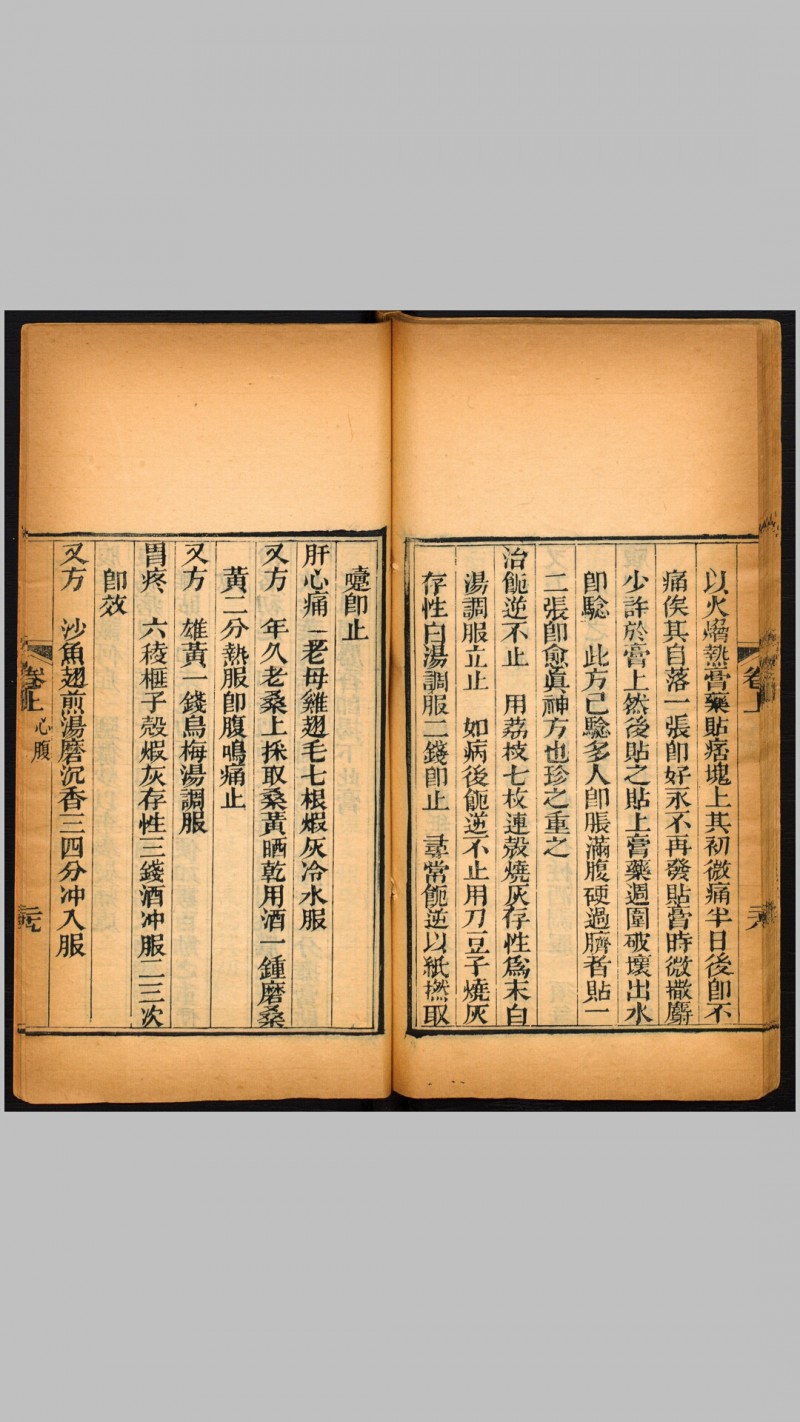 卷上
六
以火熁熱膏藥貼痞塊上其初微痛半日後卽不
痛俟其自落一張卽好永不再發貼膏時微撒麝
少許於膏上然後貼之貼上膏藥週圍破壞出水
卽騐 此方已騐多人卽脹滿腹硬過臍者貼一
二張卽愈眞神方也珍之重之
治呃逆不止 用荔枝七枚連殼燒灰存性爲末白
湯調服立止 如病後呃逆不止用刀豆子燒灰
存性白湯調服二錢卽止 尋常呃逆以紙撚取
嚏卽止
肝心痛 老母雞翅毛七根煅灰冷水服
又方 年久老桑上採取桑黃晒乾用酒一鍾磨桑
黃二分熱服卽腹鳴痛止
又方 雄黃一錢烏梅湯調服
胃疼 六稜榧子殼煅灰存性三錢酒冲服二三次
卽效
又方 沙魚翅煎湯磨沉香三四分冲入服
卷上 心腹